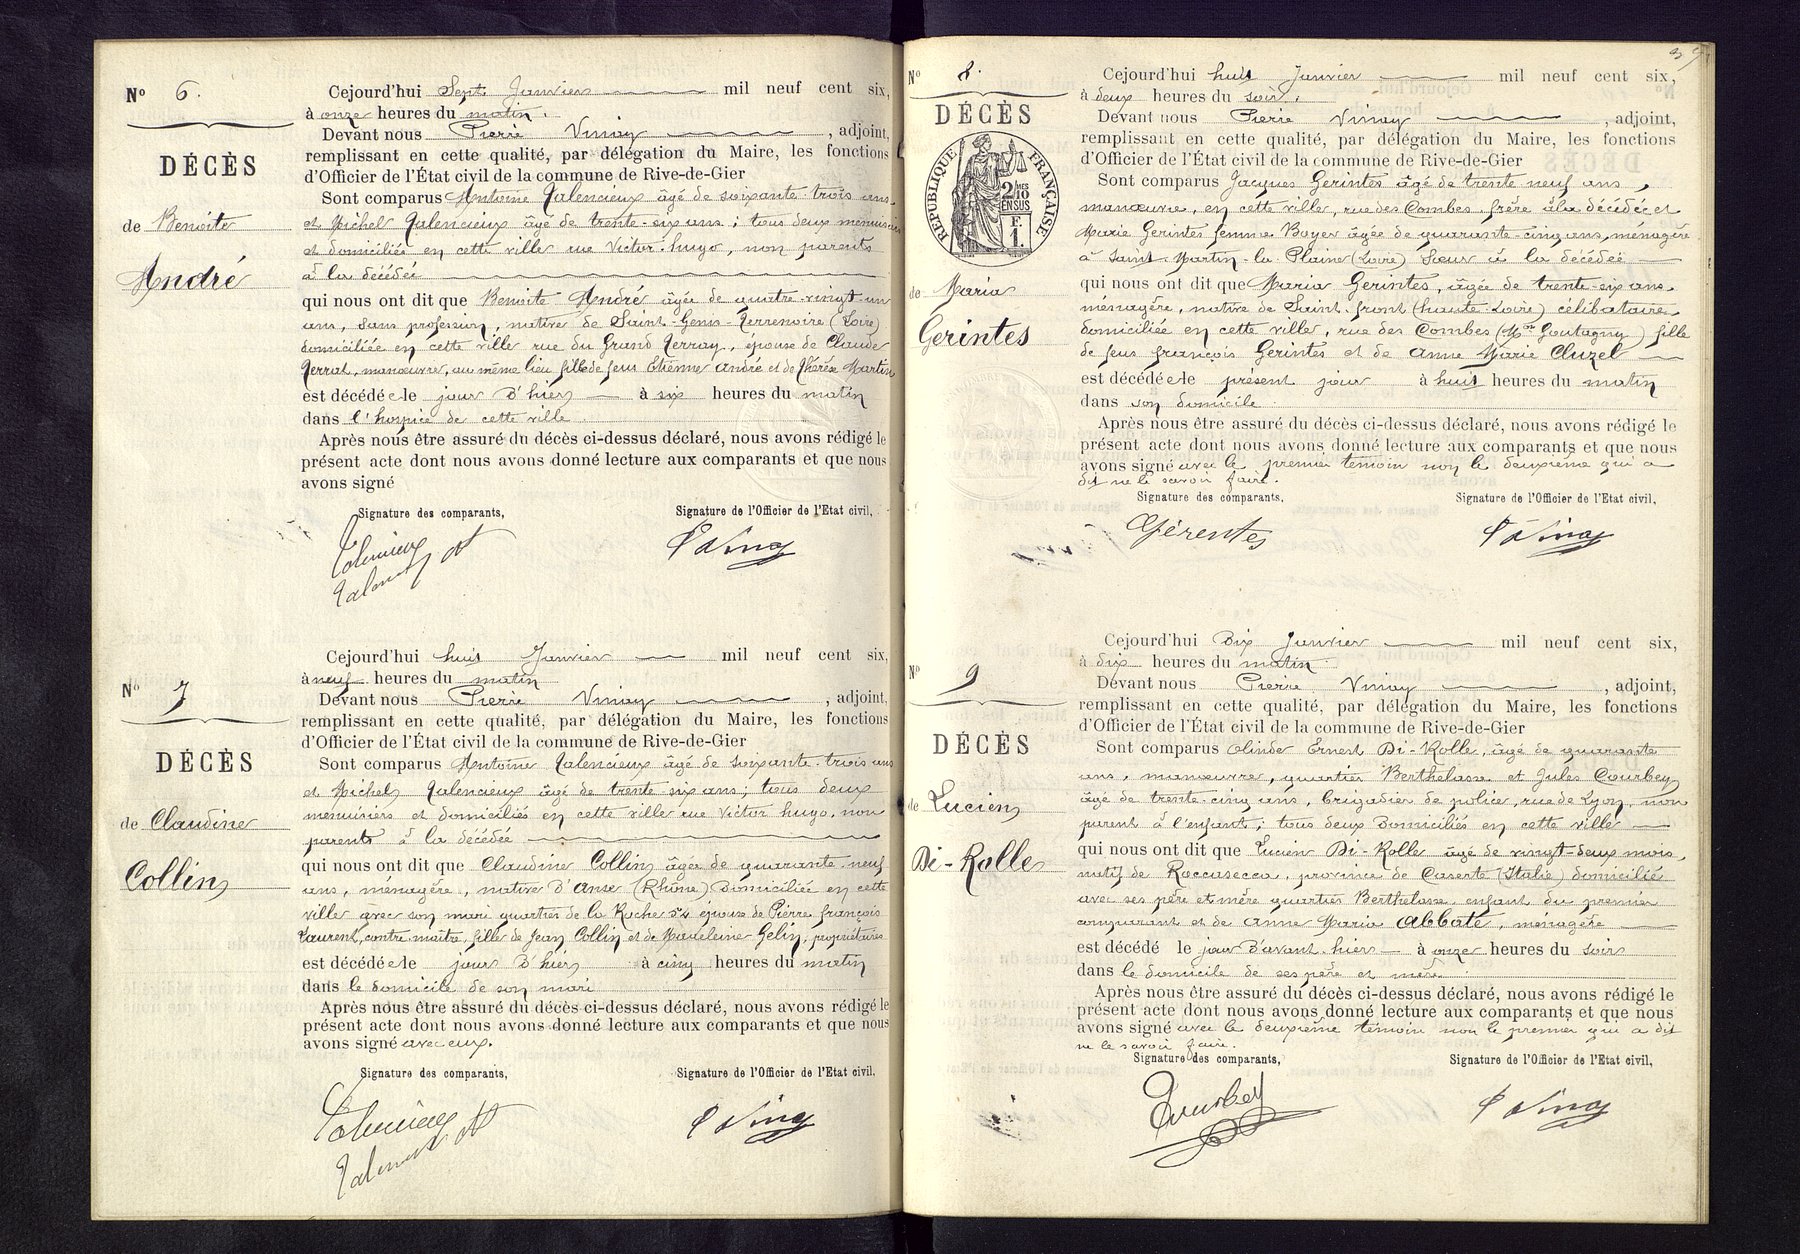 Nº 6.
DÉCÈS
de Benoîte
André
Cejourd'hui Sept Janvier mil neuf cent six,
à onze heures du matin.
Devant nous Pierre Vinay , adjoint,
remplissant en cette qualité, par délégation du Maire, les fonctions
d'Officier de l'État civil de la commune de Rive-de-Gier
Sont comparus Antoine Valencieux âgé de soixante-trois ans
et Michel Valencieux âgé de trente-six ans ; tous deux menuisiers
et domiciliés en cette ville rue Victor-hugo, non parents
à la décédée
qui nous ont dit que Benoîte André âgée de quatre-vingt-un
ans, sans profession, native de Saint-Genis-Terrenoire (Loire)
domiciliée en cette ville rue du Grand , épouse de Claude
manœuvre, au même lieu, fille de feus Etienne André et de Thérèse Martin
est décédée le jour d'hier à six heures du matin
dans l'hospice de cette ville
Après nous être assuré du décès ci-dessus déclaré, nous avons rédigé le
présent acte dont nous avons donné lecture aux comparants et que nous
avons signé
Signature des comparants, Signature de l'Officier de l'Etat civil,
P Vinay
Nº 7
DÉCÈS
de Claudine
Collin
Cejourd'hui huit Janvier mil neuf cent six,
à neuf heures du matin
Devant nous Pierre Vinay , adjoint,
remplissant en cette qualité, par délégation du Maire, les fonctions
d'Officier de l'État civil de la commune de Rive-de-Gier
Sont comparus Antoine Valencieux âgé de soixante-trois ans
et Michel Valencieux âgé de trente-six ans ; tous deux
menuisiers et domiciliés en cette ville rue Victor hugo, non
parents à la décédée
qui nous ont dit que Claudine Collin âgée de quarante-neuf
ans, ménagère, native d'Anse (Rhône) domiciliée en cette
ville avec son mari quartier de la Roche 54 épouse de Pierre françois
Laurent, contre-maître, fille de Jean Collin et de Madeleine Gelin, propriétaires
est décédée le jour d'hier à cinq heures du matin
dans le domicile de son mari
Après nous être assuré du décès ci-dessus déclaré, nous avons rédigé le
présent acte dont nous avons donné lecture aux comparants et que nous
avons signé avec eux.
Signature des comparants, Signature de l'Officier de l'Etat civil,
P Vinay
Nº 8.
DÉCÈS
RÉPUBLIQUE FRANÇAISE
2/10 MES
EN SUS
F.
1.
de Maria
Gerintes
Cejourd'hui huit Janvier mil neuf cent six,
à deux heures du soir.
Devant nous Pierre Vinay , adjoint,
remplissant en cette qualité, par délégation du Maire, les fonctions
d'Officier de l'État civil de la commune de Rive-de-Gier
Sont comparus Jacques Gerintes âgé de trente neuf ans,
manœuvre, en cette ville, rue des Combes, frère à la décédée et
Marie Gerintes femme Boyer âgée de quarante-cinq ans, ménagère
à Saint-Martin-la-Plaine (Loire) Sœur à la décédée
qui nous ont dit que Maria Gerintes, âgée de trente-six ans
ménagère, native de Saint-front (haute-Loire) célibataire
domiciliée en cette ville, rue des Combes (Mon Goutagny) fille
de feus françois Gerintes et de Anne Marie Cluzel
est décédée le présent jour à huit heures du matin
dans son domicile.
Après nous être assuré du décès ci-dessus déclaré, nous avons rédigé le
présent acte dont nous avons donné lecture aux comparants et que nous
avons signé avec le premier témoin non le deuxième qui a
dit ne le savoir faire.
Signature des comparants, Signature de l'Officier de l'Etat civil,
Gérentes P Vinay
Nº 9
DÉCÈS
de Lucien
Di-Rolle
Cejourd'hui Dix Janvier mil neuf cent six,
à dix heures du matin.
Devant nous Pierre Vinay , adjoint,
remplissant en cette qualité, par délégation du Maire, les fonctions
d'Officier de l'État civil de la commune de Rive-de-Gier
Sont comparus Olinde Ernest Di-Rolle, âgé de quarante
ans, manœuvre, quartier Berthelasse et Jules Courbey
âgé de trente-cinq ans, brigadier de police, rue de Lyon, non
parent à l'enfant ; tous deux domiciliés en cette ville
qui nous ont dit que Lucien Di-Rolle âgé de vingt-deux mois,
natif de Roccasecca, province de Caserte (Italie) domicilié
avec ses père et mère quartier Berthelasse, enfant du premier
comparant et de Anne Maria Abbate, ménagère
est décédé le jour d'avant-hier à onze heures du soir
dans le domicile de ses père et mère
Après nous être assuré du décès ci-dessus déclaré, nous avons rédigé le
présent acte dont nous avons donné lecture aux comparants et que nous
avons signé avec le deuxième témoin non le premier qui a dit
ne le savoir faire.
Signature des comparants, Signature de l'Officier de l'Etat civil,
Courbey P Vinay